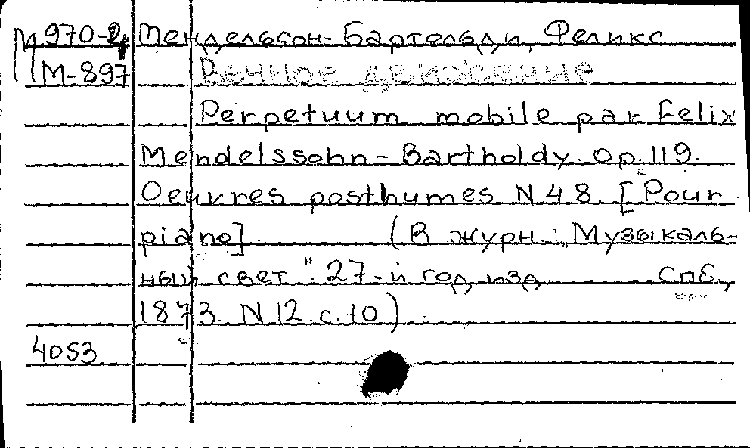 М970-4 Мендельсон-Бартольди, Феликс
М-897 Вечное движение
Perpetuum mobile par Felix
Mendelssohn-Bartholdy. Op. 119.
Oeuvres posthumes N 48. [Pour
piano] (В журн.: Музыкаль-
ный свет". 27-й год изд Спб.,
1873. N 12 с. 10)
4053